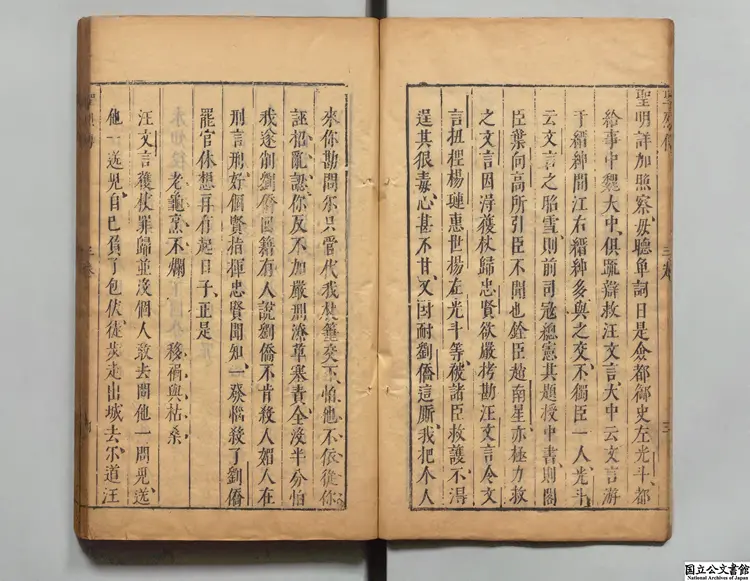 聖明詳加照察毋聽单詞曰是僉都御史左光斗都
給事中魏大中俱疏辯救汪文言大中云文言游
于縉紳間江右縉紳多與之交不獨臣一人光斗
云文言之昭雪則前司寇總憲其題授中書則閣
臣葉向高所引臣不聞也銓臣趙南星亦極力救
之文言因得獲杖歸忠賢欲嚴拷勘汪文言令文
言扭捏楊漣惠世揚左光斗等被諸臣救護不得
逞其狠毒心甚不甘又因耐劉僑這厮我把个人
來你勘問尔只當代我
怕他不依從你
誣招亂認你反不加嚴刑潦草塞責全沒半分怕
我遂削劉僑回籍有人說劉僑不肯殺人媚人在
刑言刑好個賢指揮忠賢聞知一發惱殺了劉僑
罷官休想再有起日子正是
老龜烹不爛 移禍與枯桑
汪文言獲杖罪歸並沒個人敢去問他一問見送
他一送見自已負了包伏徒步走出城去尔道汪
三卷
三
国立公文書館
National Archives of Japan